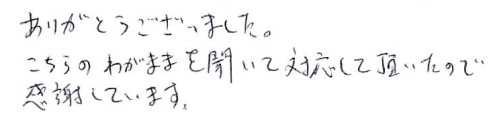 ありがとうございました。
こちらのわがままを聞いて対応して頂いたので
感謝しています。